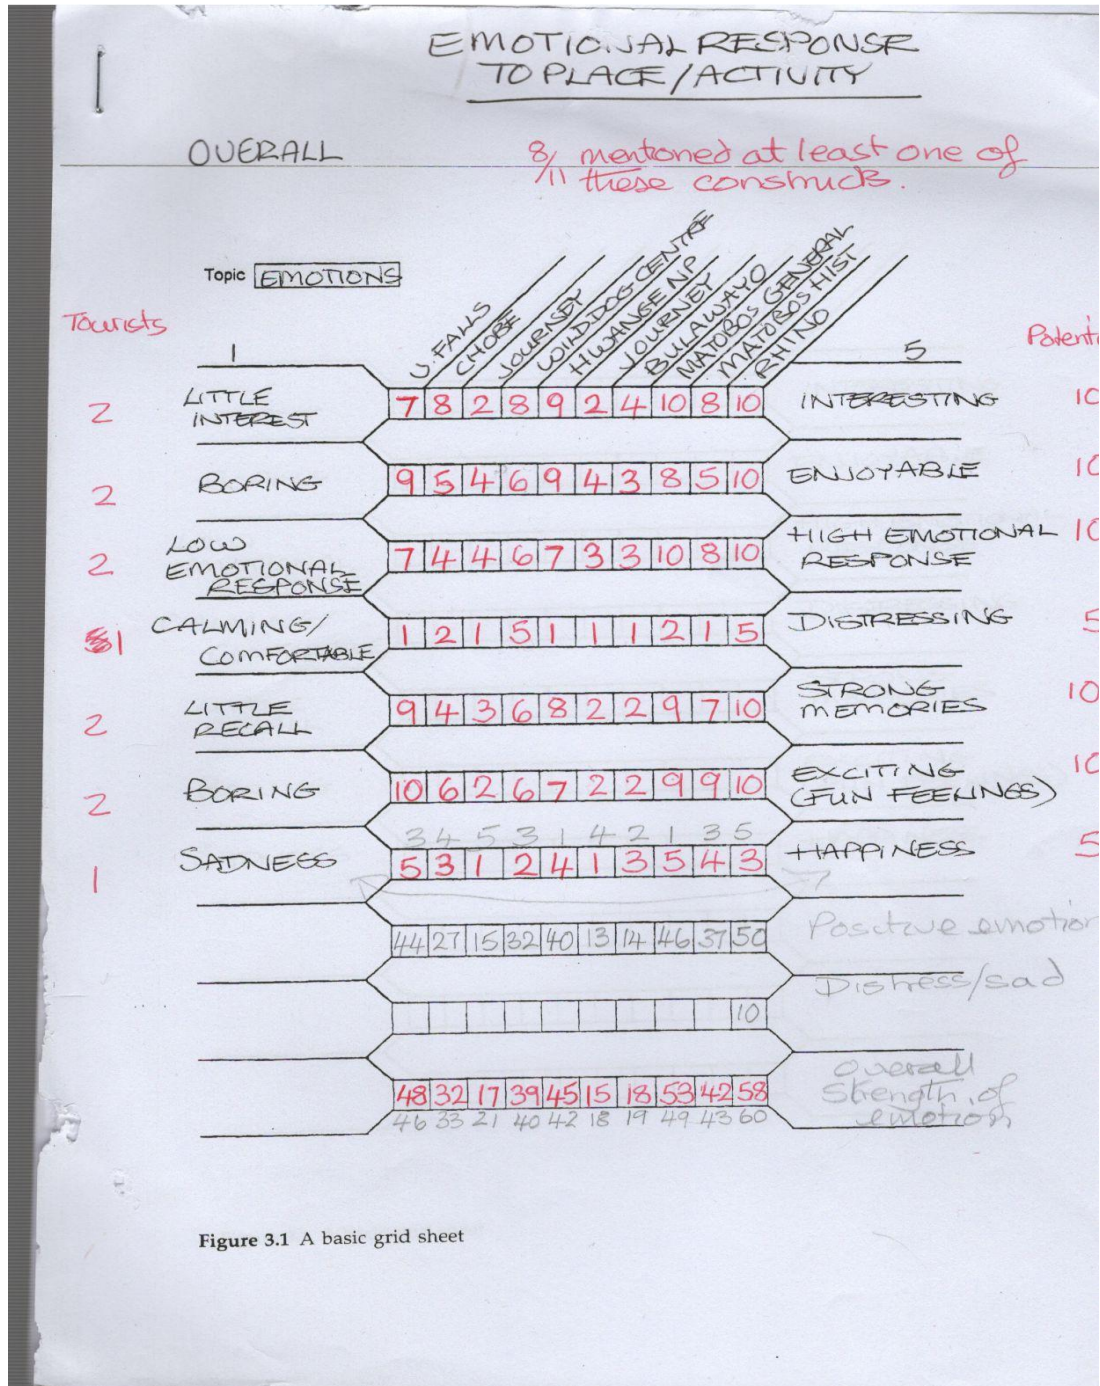 EMOTIONAL RESPONSE
TO PLACE/ACTIVITY
OVERALL
8/11 mentoned at least one of
these constructs.
Topic EMOTIONS
V. FALLS
CHOBE
JOURNEY
WILD DOG CENTRE
HWANGE NP
JOURNEY
BULAWAYO
MATOBOS GENERAL
MATOBOS HIST
RHINO
Tourists
1 5
2 LITTLE INTEREST 7 8 2 8 9 2 4 10 8 10 INTERESTING 10
2 BORING 9 5 4 6 9 4 3 8 5 10 ENJOYABLE 10
2 LOW EMOTIONAL RESPONSE 7 4 4 6 7 3 3 10 8 10 HIGH EMOTIONAL RESPONSE 10
1 CALMING/ COMFORTABLE 1 2 1 5 1 1 1 2 1 5 DISTRESSING 5
2 LITTLE RECALL 9 4 3 6 8 2 2 9 7 10 STRONG MEMORIES 10
2 BORING 10 6 2 6 7 2 2 9 9 10 EXCITING (FUN FEELINGS) 10
3 4 5 3 1 4 2 1 3 5
1 SADNESS 5 3 1 2 4 1 3 5 4 3 HAPPINESS 5
44 27 15 32 40 13 14 46 37 50 Positive emotion
10 Distress/sad
48 32 17 39 45 15 18 53 42 58 Overall Strength of emotion
46 33 21 40 42 18 19 49 43 60
Figure 3.1 A basic grid sheet